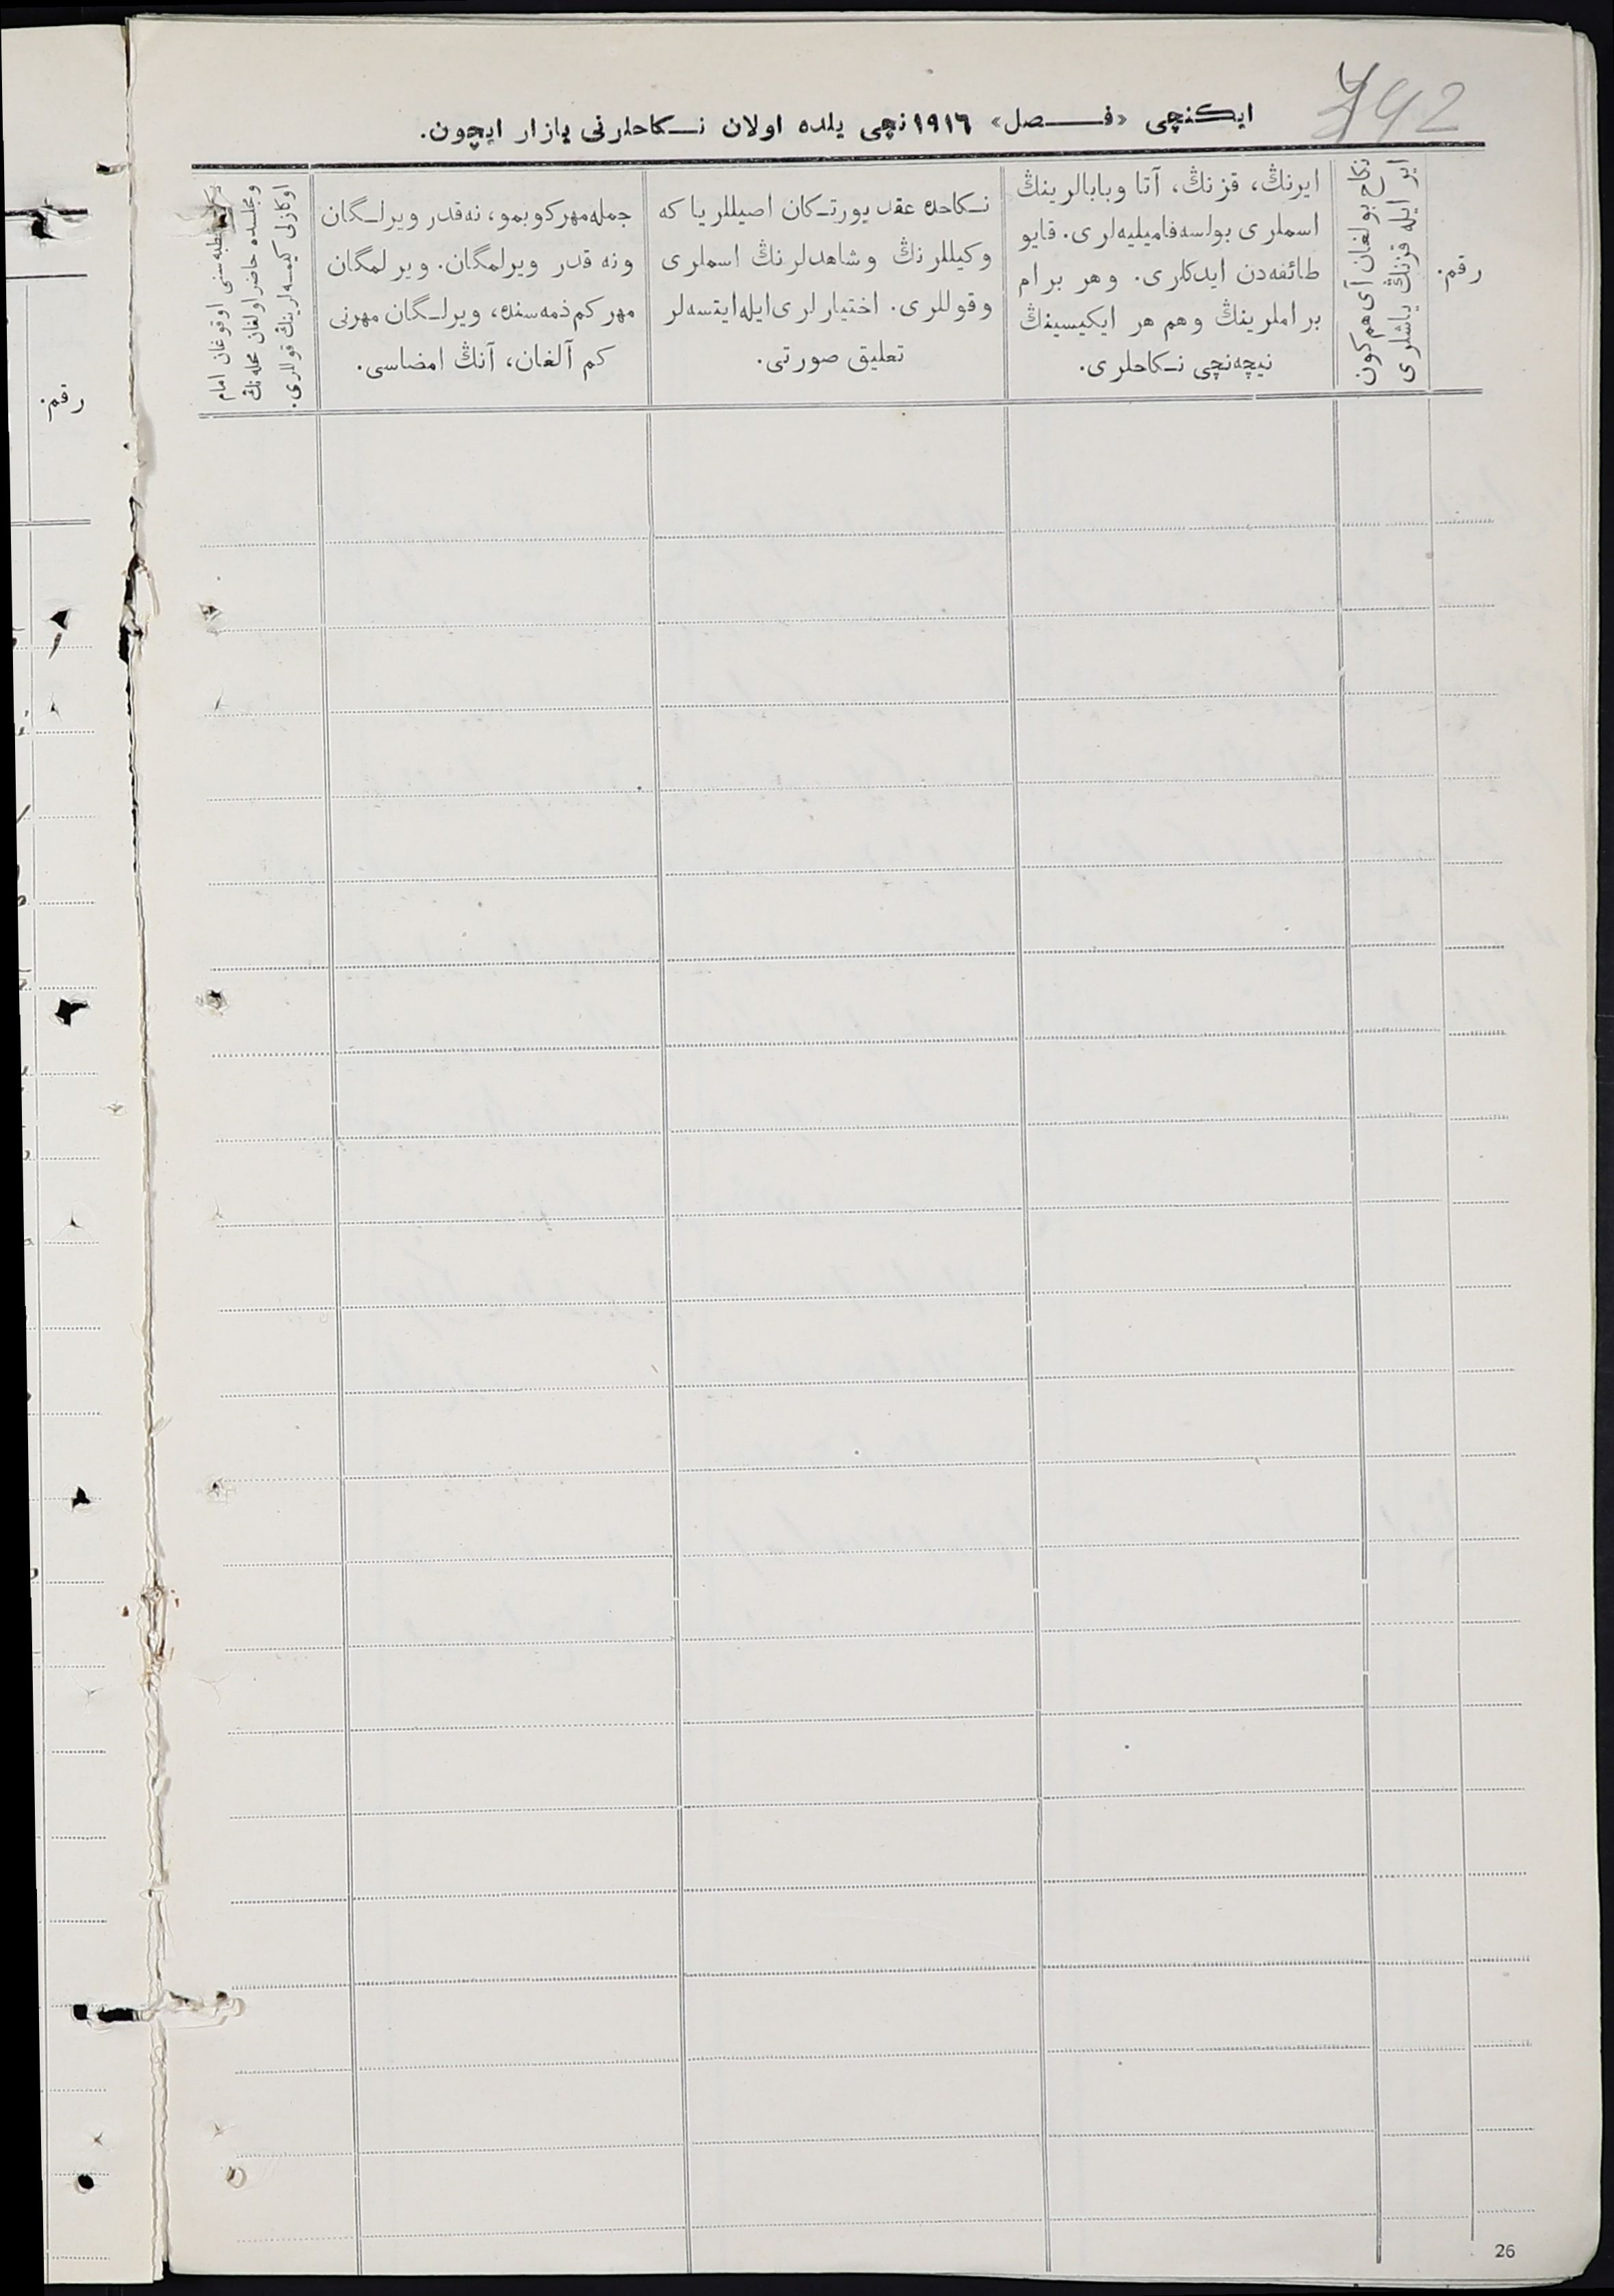 792
ايكنچی «فـــصل» ١٩١٦نچی يلده اولان نـكاحلرنی يازار ايچون.
رقم.
نكاح بولغان آی هم كون
اير ايله قزنڭ ياشلری
ايرنڭ، قزنڭ، آتا وبابالرينڭ
اسملری بولسه فاميليه‌لری. قايو
طائفه‌دن ايدكلری. وهر برام
براملرينڭ وهم هر ايكيسينڭ
نيچه‌نچی نـكاحلری.
نـكاحده عقد يورتـكان اصيللر يا كه
وكيللرنڭ وشاهدلرنڭ اسملری
وقوللری. اختيارلری ايله ايتسه‌لر
تعليق صورتی.
جمله مهركوبمو، نه‌قدر ويرلـگان
ونه قدر ويرلمگان. ويرلمگان
مهر كم ذمه‌سنده، ويرلـگان مهرنی
كم آلغان، آنڭ امضاسی.
خطبه‌سنی اوقوغان امام
ومجلسده حاضر اولغان محله‌نڭ
اوكازلی كيمسه‌لرينڭ قوللری.
رقم.
26